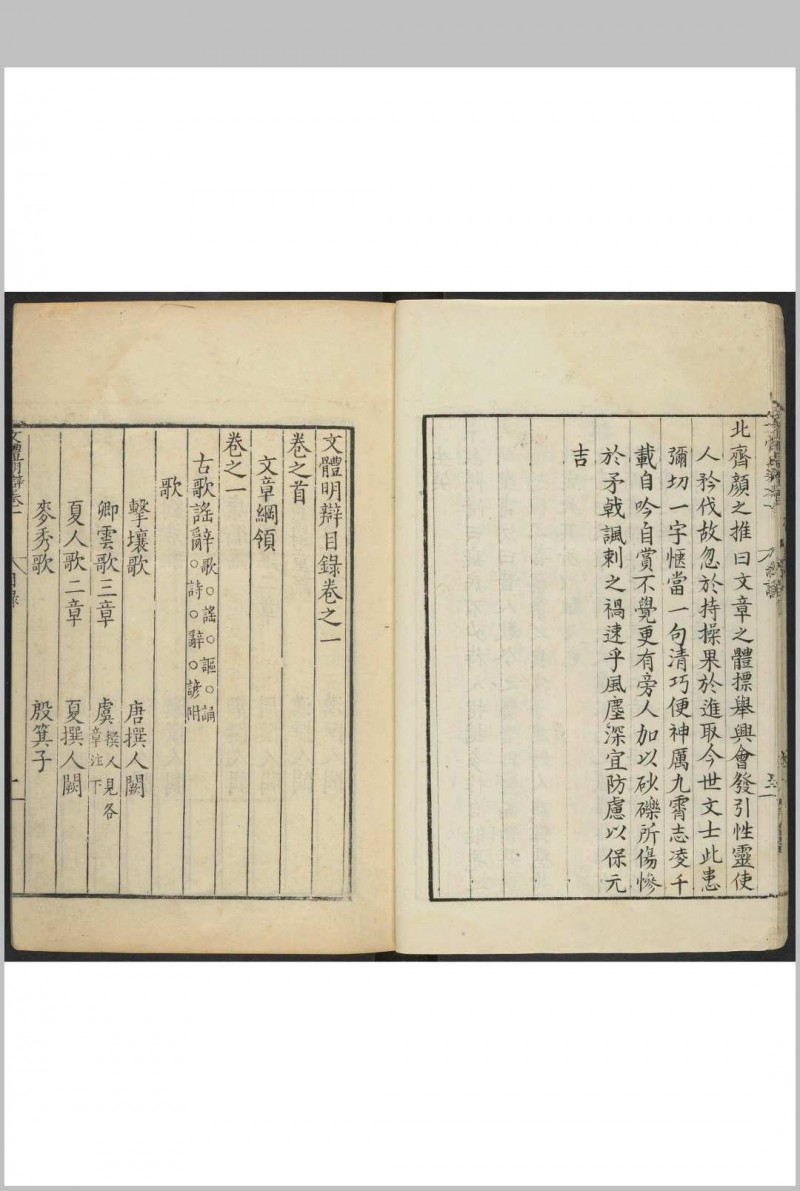 北齊顏之推曰文章之體標舉興會發引性靈使
人矜伐故忽於持操果於進取今世文士此患
彌切一字愜當一句清巧便神厲九霄志凌千
載自吟自賞不覺更有旁人加以砂礫所傷慘
於矛戟諷刺之禍速乎風塵深宜防慮以保元
吉
文體明辯目錄卷之一
卷之首
文章綱領
卷之一
古歌謠辭 歌○謠○謳○誦○詩○辭○諺附
歌
擊壤歌 唐撰人闕
卿雲歌三章 虞撰人見各章注下
夏人歌二章 夏撰人闕
麥秀歌 殷箕子
文體明辯卷一 目錄 一